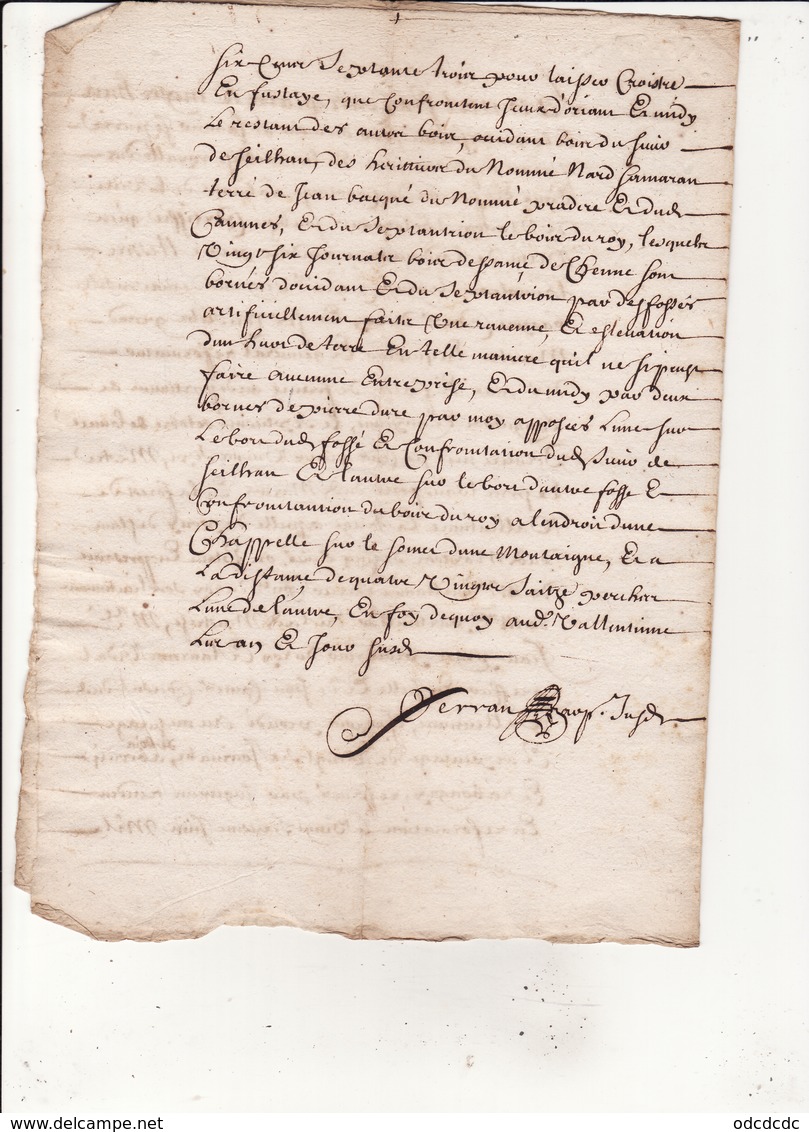 six cens septante trois pour laisser Croistre
En fustaye, que Confrontent Jceux d'oriant Et midy
Le restant des autres bois, occidant bois du sieur
de seilhan, des herittiers du Nommé Nard samaran
terre de Jean bacqué du Nommé pradere Et dud
Cammes, Et du septantrion le bois du roy, lesquels
Vingt six Journals bois dessence de Chenne sont
bornés doccidant Et du septantrion par des fossés
artificiellement faits Une ravenne, Et eslevation
dun hors de terre En telle maniere quil ne si peust
faire aucunne Entreprise, Et du midy par deux
bornes de pierre dure par moy apposées Lune sur
Le bort dud fossé Et Confrontation dud sieur de
seilhan Et lautre sur le bort dautre fossé Et
Confrontannion du bois du roy a lendroit dune
Chappelle sur le somet dune Montaigne, Et a
La distance de quatre Vingts saitze perches
Lune de lautre, En foy de quoy aud. Vallentinne
Les an Et Jour susd
Ferran susd
odcdcdc